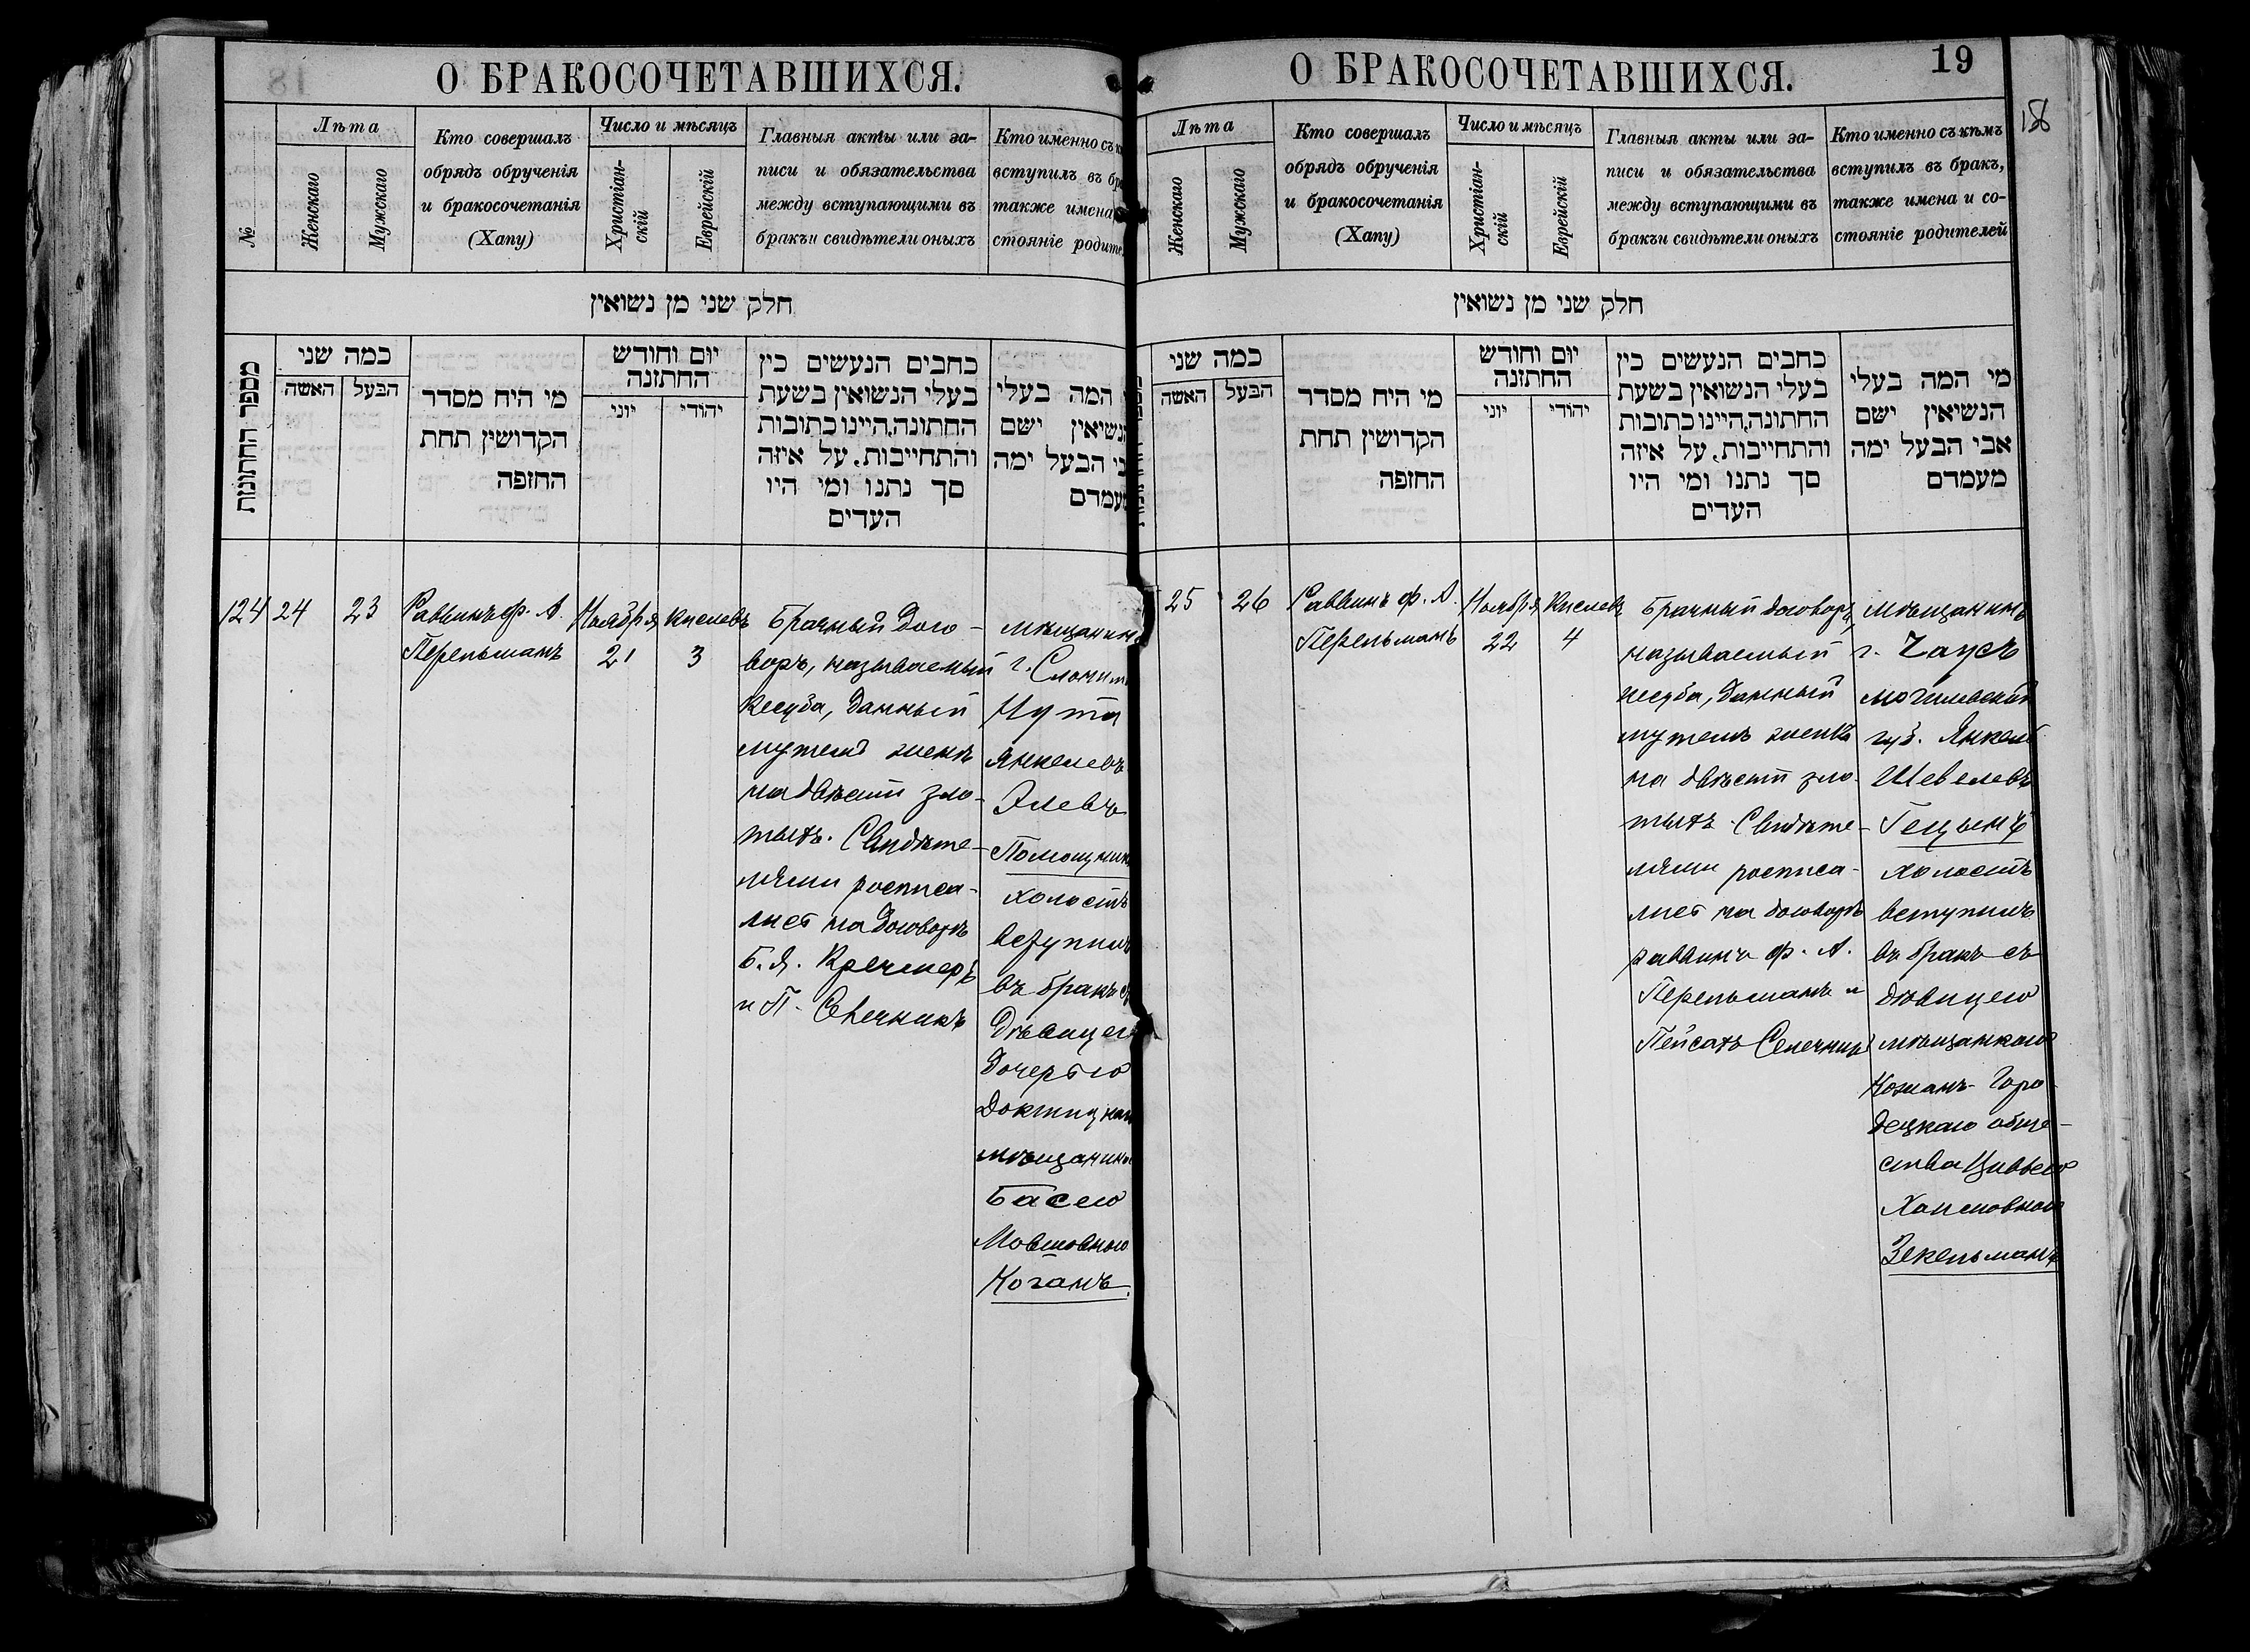 О БРАКОСОЧЕТАВШИХСЯ.
№
Лѣта
Женскаго
Мужскаго
Кто совершалъ
обрядъ обрученія
и бракосочетанія
(Хапу)
Число и мѣсяцъ
Христіан-
скій
Еврейскій
Главныя акты или за-
писи и обязательства
между вступающими въ
бракъ и свидѣтели оныхъ
Кто именно съ
вступилъ въ
также имена
стояніе
חלק שני מן נשואין
מספר החתונות
כמה שני
האשה
הבעל
מי היח מסדר
הקדושין תחת
החופה
יום וחודש
החתונה
יוני
יהודי
כתבים הנעשים בין
בעלי הנשואין בשעת
החתונה, היינו כתובות
והתחייבות, על איזה
סך נתנו ומי היו
העדים
המה בעלי
ישם
הבעל ימה
מעמדם
124
24
23
Раввинъ Ф. А.
Перельманъ
Ноября
21
Кислевъ
3
Брачный дого-
воръ, называемый
Кесуба, данный
мужемъ женѣ
на двѣсти зло-
тыхъ. Свидѣте-
лями росписа-
лись на договорѣ
Б. Я. Кречмеръ
и П. Сѣчникъ
мѣщанинъ
г. Слонима
Нута
Янкелевъ
Элевъ
Помощникъ
холостъ
вступилъ
въ бракъ съ
дѣвицею
дочерью
Докшицкаго
мѣщанина
Басею
Мовшовною
Коганъ.
О БРАКОСОЧЕТАВШИХСЯ.
19
156
Лѣта
Женскаго
Мужскаго
Кто совершалъ
обрядъ обрученія
и бракосочетанія
(Хапу)
Число и мѣсяцъ
Христіан-
скій
Еврейскій
Главныя акты или за-
писи и обязательства
между вступающими въ
бракъ и свидѣтели оныхъ
Кто именно съ кѣмъ
вступилъ въ бракъ,
также имена и со-
стояніе родителей
חלק שני מן נשואין
כמה שני
האשה
הבעל
מי היח מסדר
הקדושין תחת
החופה
יום וחודש
החתונה
יוני
יהודי
כתבים הנעשים בין
בעלי הנשואין בשעת
החתונה, היינו כתובות
והתחייבות, על איזה
סך נתנו ומי היו
העדים
מי המה בעלי
הנשיאין ישם
אבי הבעל ימה
מעמדם
25
26
Раввинъ Ф. А.
Перельманъ
Ноября
22
Кислевъ
4
Брачный договоръ,
называемый
кесуба, данный
мужемъ женѣ
на двѣсти зло-
тыхъ. Свидѣте-
лями росписа-
лись на договорѣ
раввинъ Ф. А.
Перельманъ и
Пейсахъ
мѣщанинъ
г. Чаусъ
могилевской
губ. Янкель
Шевелевъ
холостъ
вступилъ
въ бракъ съ
дѣвицею
мѣщанкою
Кожанъ-Горо-
децкаго обще-
ства Цивьею
Хаимовною
Зекельманъ